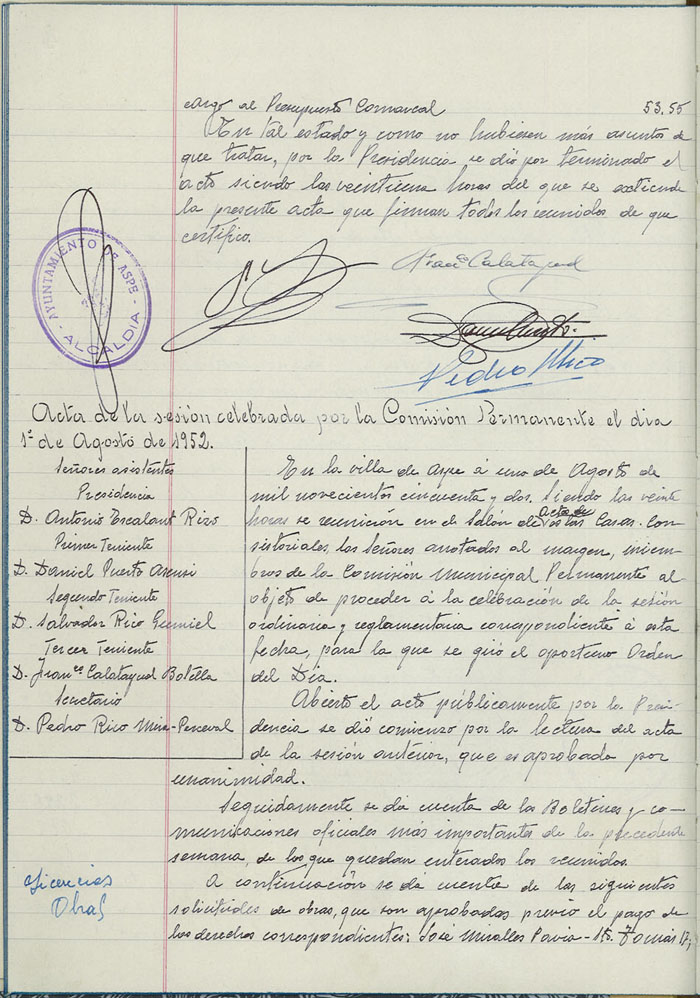 cargo al Presupuesto Comarcal 53.55
En tal estado y como no hubiesen más asuntos de
que tratar, por la Presidencia se dió por terminado el
acto siendo las veintiuna horas del que se extiende
la presente acta que firman todos los reunidos de que
certifico.
AYUNTAMIENTO DE ASPE
- ALCALDIA -
Franco Calatayud
Pedro Rico
Acta de la sesión celebrada por la Comisión Permanente el dia
1º de Agosto de 1952.
Señores asistentes
Presidencia
D. Antonio Escalant Rizo
Primer Teniente
D. Daniel Puerto Asensi
Segundo Teniente
D. Salvador Rico Gumiel
Tercer Teniente
D. Franco Calatayud Botella
Secretario
D. Pedro Rico Mira-Perceval
En la villa de Aspe á uno de Agosto de
mil novecientos cincuenta y dos. Siendo las veinte
horas se reunieron en el Salón de actos de estas Casas Con-
sistoriales los Señores anotados al margen, miem-
bros de la Comisión Municipal Permanente al
objeto de proceder á la celebración de la sesión
ordinaria y reglamentaria correspondiente á esta
fecha, para la que se giró el oportuno Orden
del Dia.
Abierto el acto públicamente por la Presi-
dencia se dió comienzo por la lectura del acta
de la sesión anterior, que es aprobada por
unanimidad.
Seguidamente se da cuenta de los Boletines y co-
municaciones oficiales más importantes de la precedente
semana, de los que quedan enterados los reunidos.
Licencias
Obras
A continuación se dá cuenta de las siguientes
solicitudes de obras, que son aprobadas previo el pago de
los derechos correspondientes: José Miralles Pavia - Sto. Tomás 17;